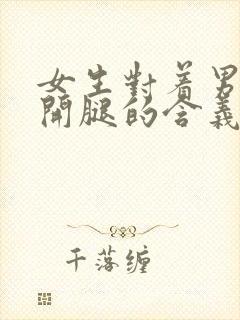 女生對着男
開腿的含義
千落缠